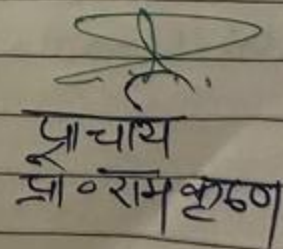 प्राचार्य
प्रा॰ रामकृष्ण